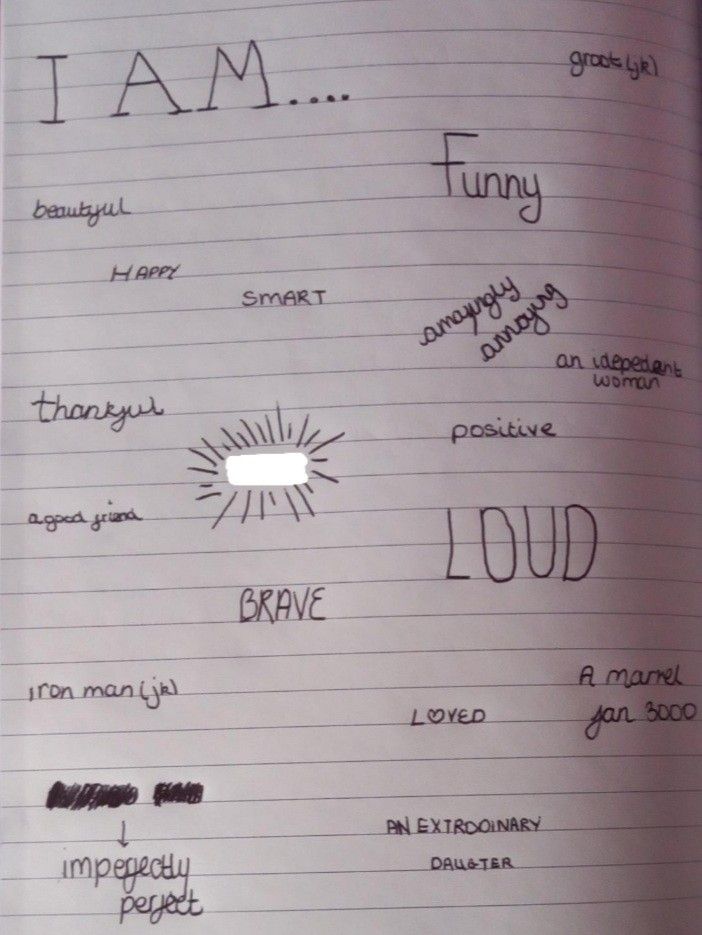 I AM....
groot (jk)
Funny
beautyul
HAPPY
SMART
amazingly
annoying
an idepedant
woman
thankful
positive
a good friend
LOUD
BRAVE
iron man (jk)
A marvel
fan 3000
L♡VED
AN EXTRODINARY
DAUGTER
imperfectly
perfect